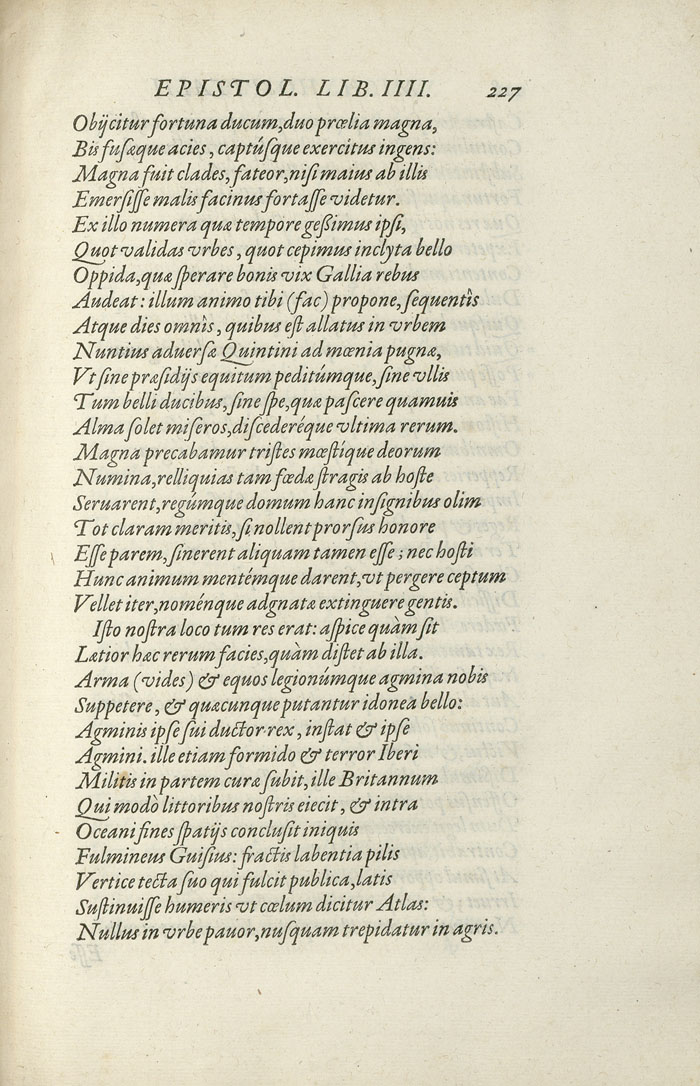 EPISTOL. LIB. IIII. 227
Obijcitur fortuna ducum, duo prœlia magna,
Bis fusæque acies, captúsque exercitus ingens:
Magna fuit clades, fateor, nisi maius ab illis
Emersisse malis facinus fortasse videtur.
Ex illo numera quæ tempore geßimus ipsi,
Quot validas vrbes, quot cepimus inclyta bello
Oppida, quæ sperare bonis vix Gallia rebus
Audeat: illum animo tibi (fac) propone, sequentîs
Atque dies omnîs, quibus est allatus in vrbem
Nuntius aduersæ Quintini ad mœnia pugnæ,
Vt sine præsidijs equitum peditúmque, sine vllis
Tum belli ducibus, sine spe, quæ pascere quamuis
Alma solet miseros, discederéque vltima rerum.
Magna precabamur tristes mœstíque deorum
Numina, relliquias tam fœdæ stragis ab hoste
Seruarent, regúmque domum hanc insignibus olim
Tot claram meritis, si nollent prorsus honore
Esse parem, sinerent aliquam tamen esse; nec hosti
Hunc animum mentémque darent, vt pergere ceptum
Vellet iter, noménque adgnatæ extinguere gentis.
Isto nostra loco tum res erat: aspice quàm sit
Lætior hæc rerum facies, quàm distet ab illa.
Arma (vides) & equos legionúmque agmina nobis
Suppetere, & quæcunque putantur idonea bello:
Agminis ipse sui ductor rex, instat & ipse
Agmini. ille etiam formido & terror Iberi
Militis in partem curæ subit, ille Britannum
Qui modò littoribus nostris eiecit, & intra
Oceani fines spatijs conclusit iniquis
Fulmineus Guisius: fractis labentia pilis
Vertice tecta suo qui fulcit publica, latis
Sustinuisse humeris vt cœlum dicitur Atlas:
Nullus in vrbe pauor, nusquam trepidatur in agris.